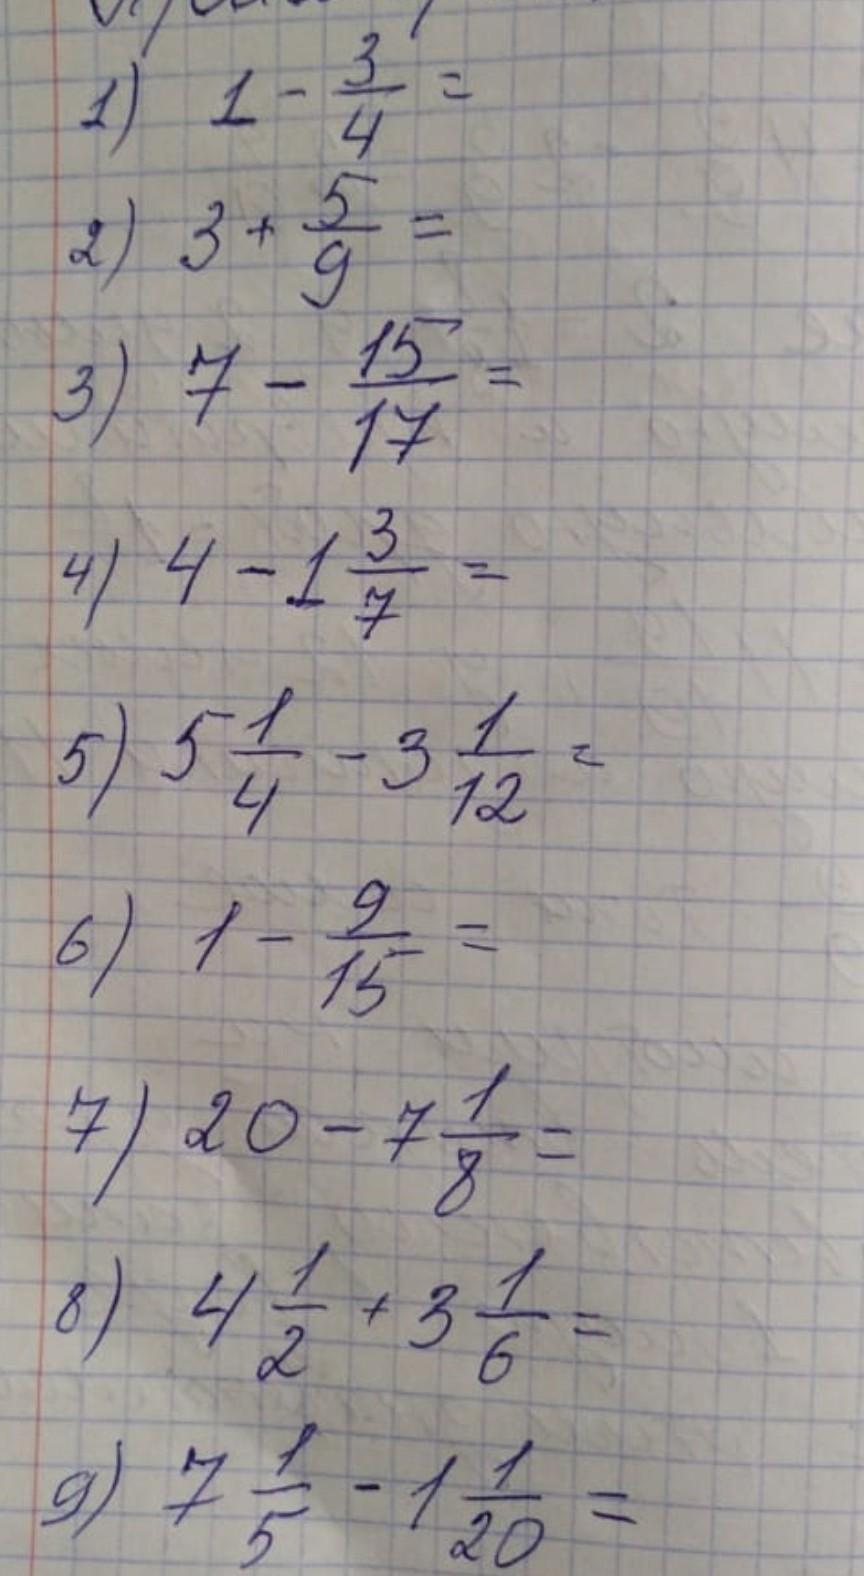 1) 1 - 3/4 =
2) 3 + 5/9 =
3) 7 - 15/17 =
4) 4 - 1 3/7 =
5) 5 1/4 - 3 1/12 =
6) 1 - 9/15 =
7) 20 - 7 1/8 =
8) 4 1/2 + 3 1/6 =
9) 7 1/5 - 1 1/20 =